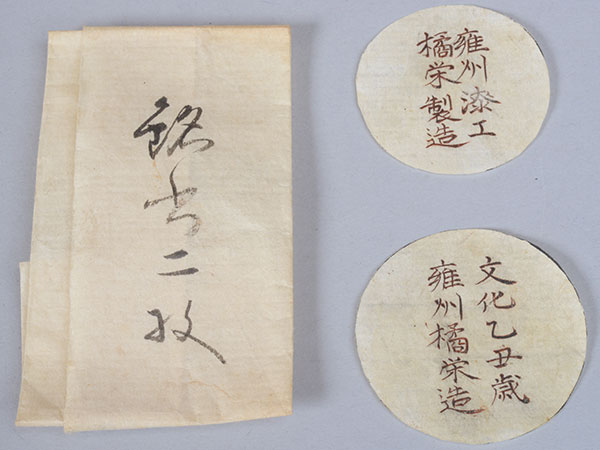 銘書二枚
雍州漆工
橘栄製造
文化乙丑歳
雍州橘栄造